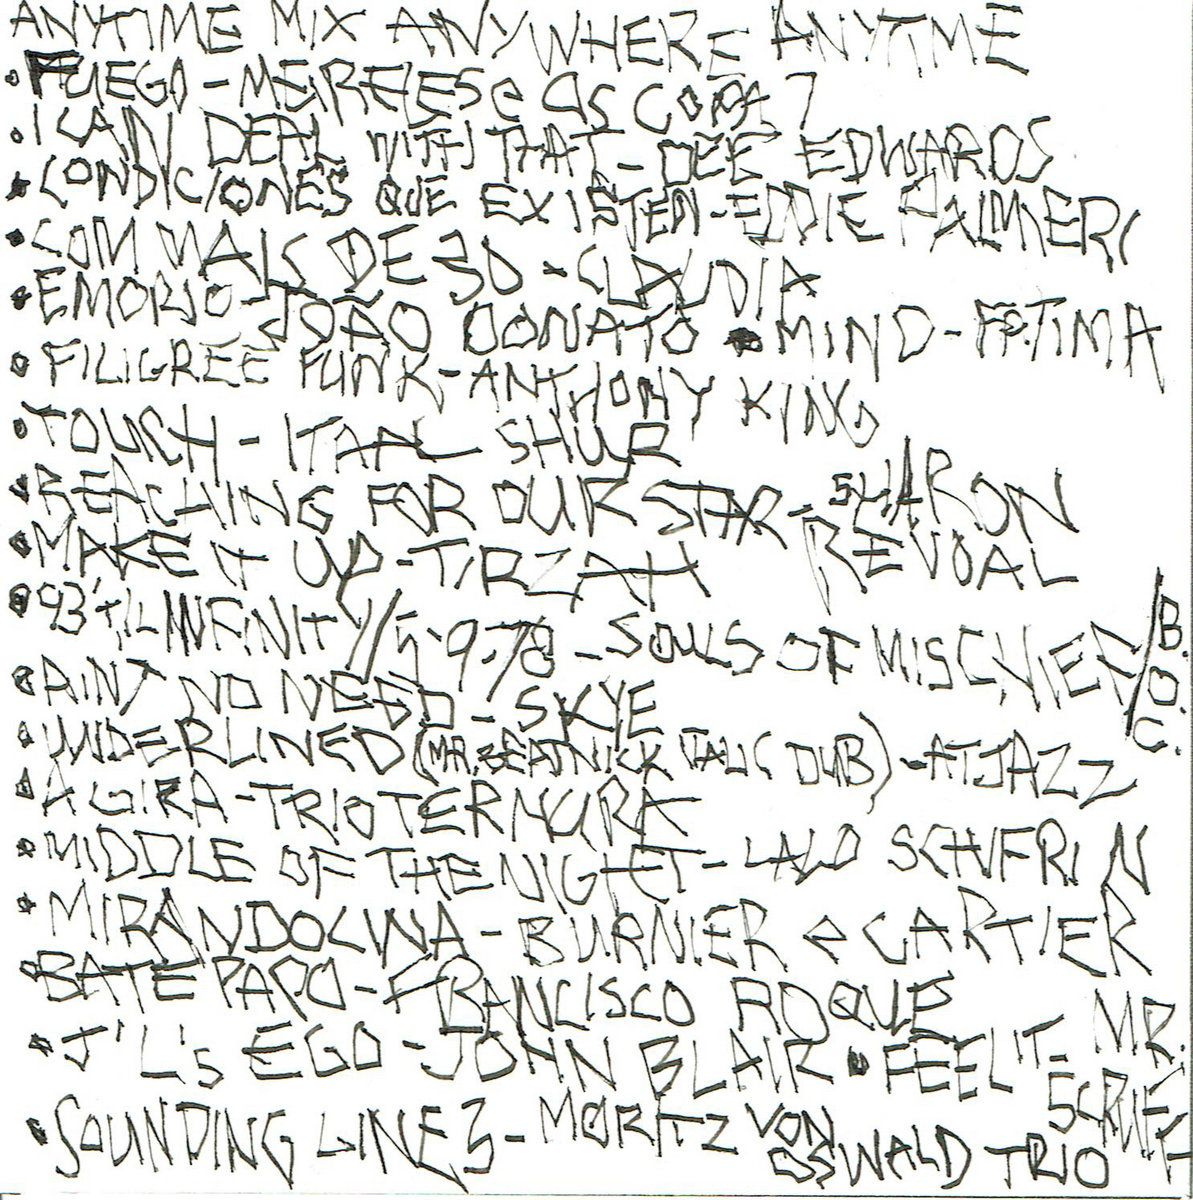 ANYTIME MIX ANYWHERE ANYTIME
• FUEGO - MEIRELES e OS COPA 7
• I CAN DEAL WITH THAT - DEE EDWARDS
• CONDICIONES QUE EXISTEN - EDDIE PALMERI
• COM MAIS DE 30 - CLAUDIA
• EMORIO - JOÃO DONATO • MIND - FATIMA
• FILIGREE FUNK - ANTHONY KING
• TOUCH - ITAL SHUR
• REACHING FOR OUR STAR - SHARON REVOAL
• MAKE IT UP - TIRZAH
• 93 'TIL INFINITY / 5.9.78 - SOULS OF MISCHIEF / B.O.C.
• AINT NO NEED - SKYE
• UNDERLINED (MR. BEATNICK ITALIC DUB) - ATJAZZ
• A GIRA - TRIO TERNURA
• MIDDLE OF THE NIGHT - LALO SCHIFRIN
• MIRANDOLINA - BURNIER e CARTIER
• BATE PAPO - FRANCISCO ROQUE
• J'L's EGO - JOHN BLAIR • FEEL IT - MR. SCRUFF
• SOUNDING LINES - MORITZ VON OSWALD TRIO